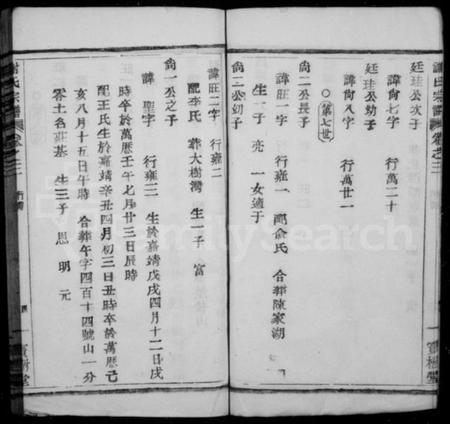 謝氏宗譜 卷之三
廷珪公次子
諱尙七字 行萬二十
廷珪公幼子
諱尙八字 行萬廿一
第七世
尙二公長子
諱旺一字 行雍一 配俞氏 合葬陳家湖
生一子 亮 一女適于
尙二公幼子
寶樹堂
諱旺二字 行雍二
配李氏 葬大樹灣 生一子 富
尙一公之子
諱聖字 行雍三 生於嘉靖戊戌四月十二日戌
時卒於萬歷壬午七月廿三日辰時
配王氏生於嘉靖辛丑四月初三日丑時卒於萬歷己
亥八月十五日午時 合葬午字四百十四號山一分
零土名莊基 生三子 思 明 元
謝氏宗譜 卷之三
FamilySearch